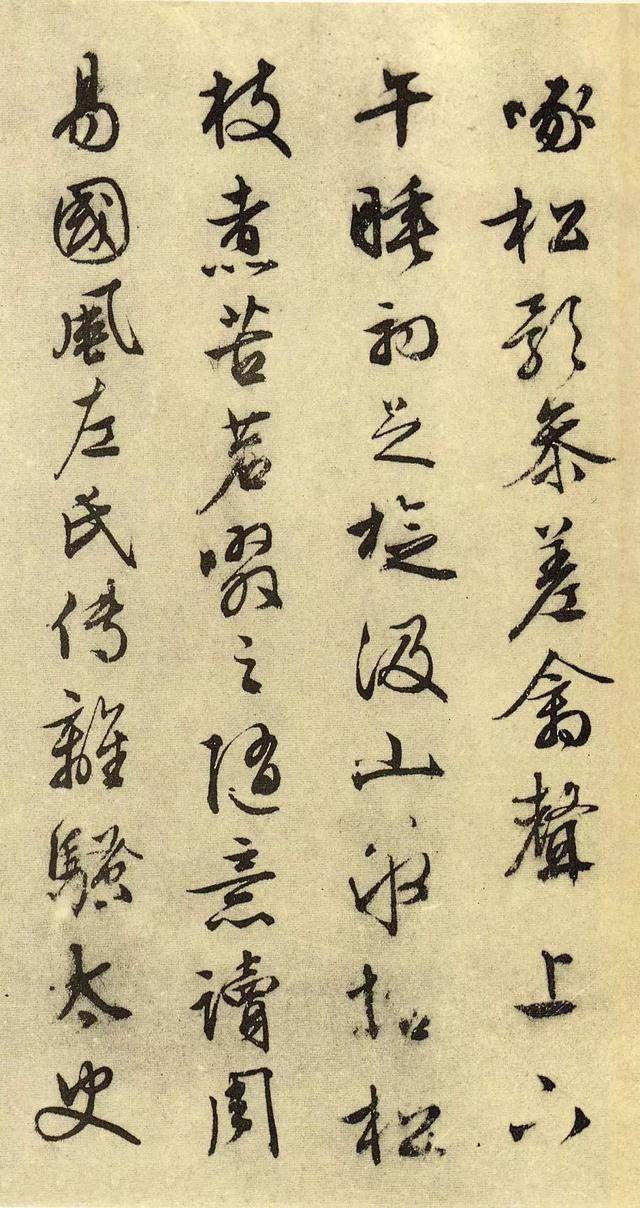 啄松影参差禽聲上下
午睡初足旋汲山泉拾松
枝煮苦茗啜之隨意讀周
易國風左氏傳離騷太史